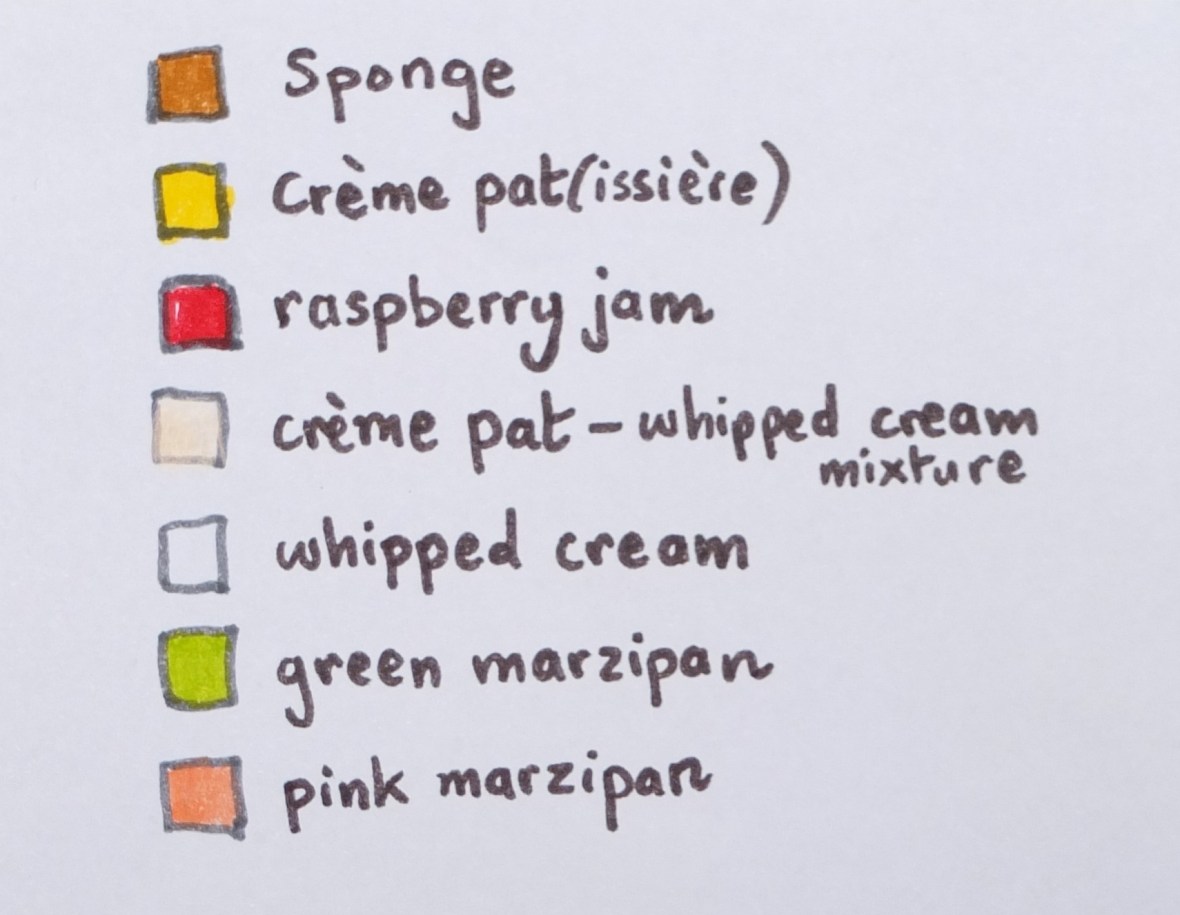 Sponge
Crème pat(issière)
raspberry jam
crème pat - whipped cream
mixture
whipped cream
green marzipan
pink marzipan